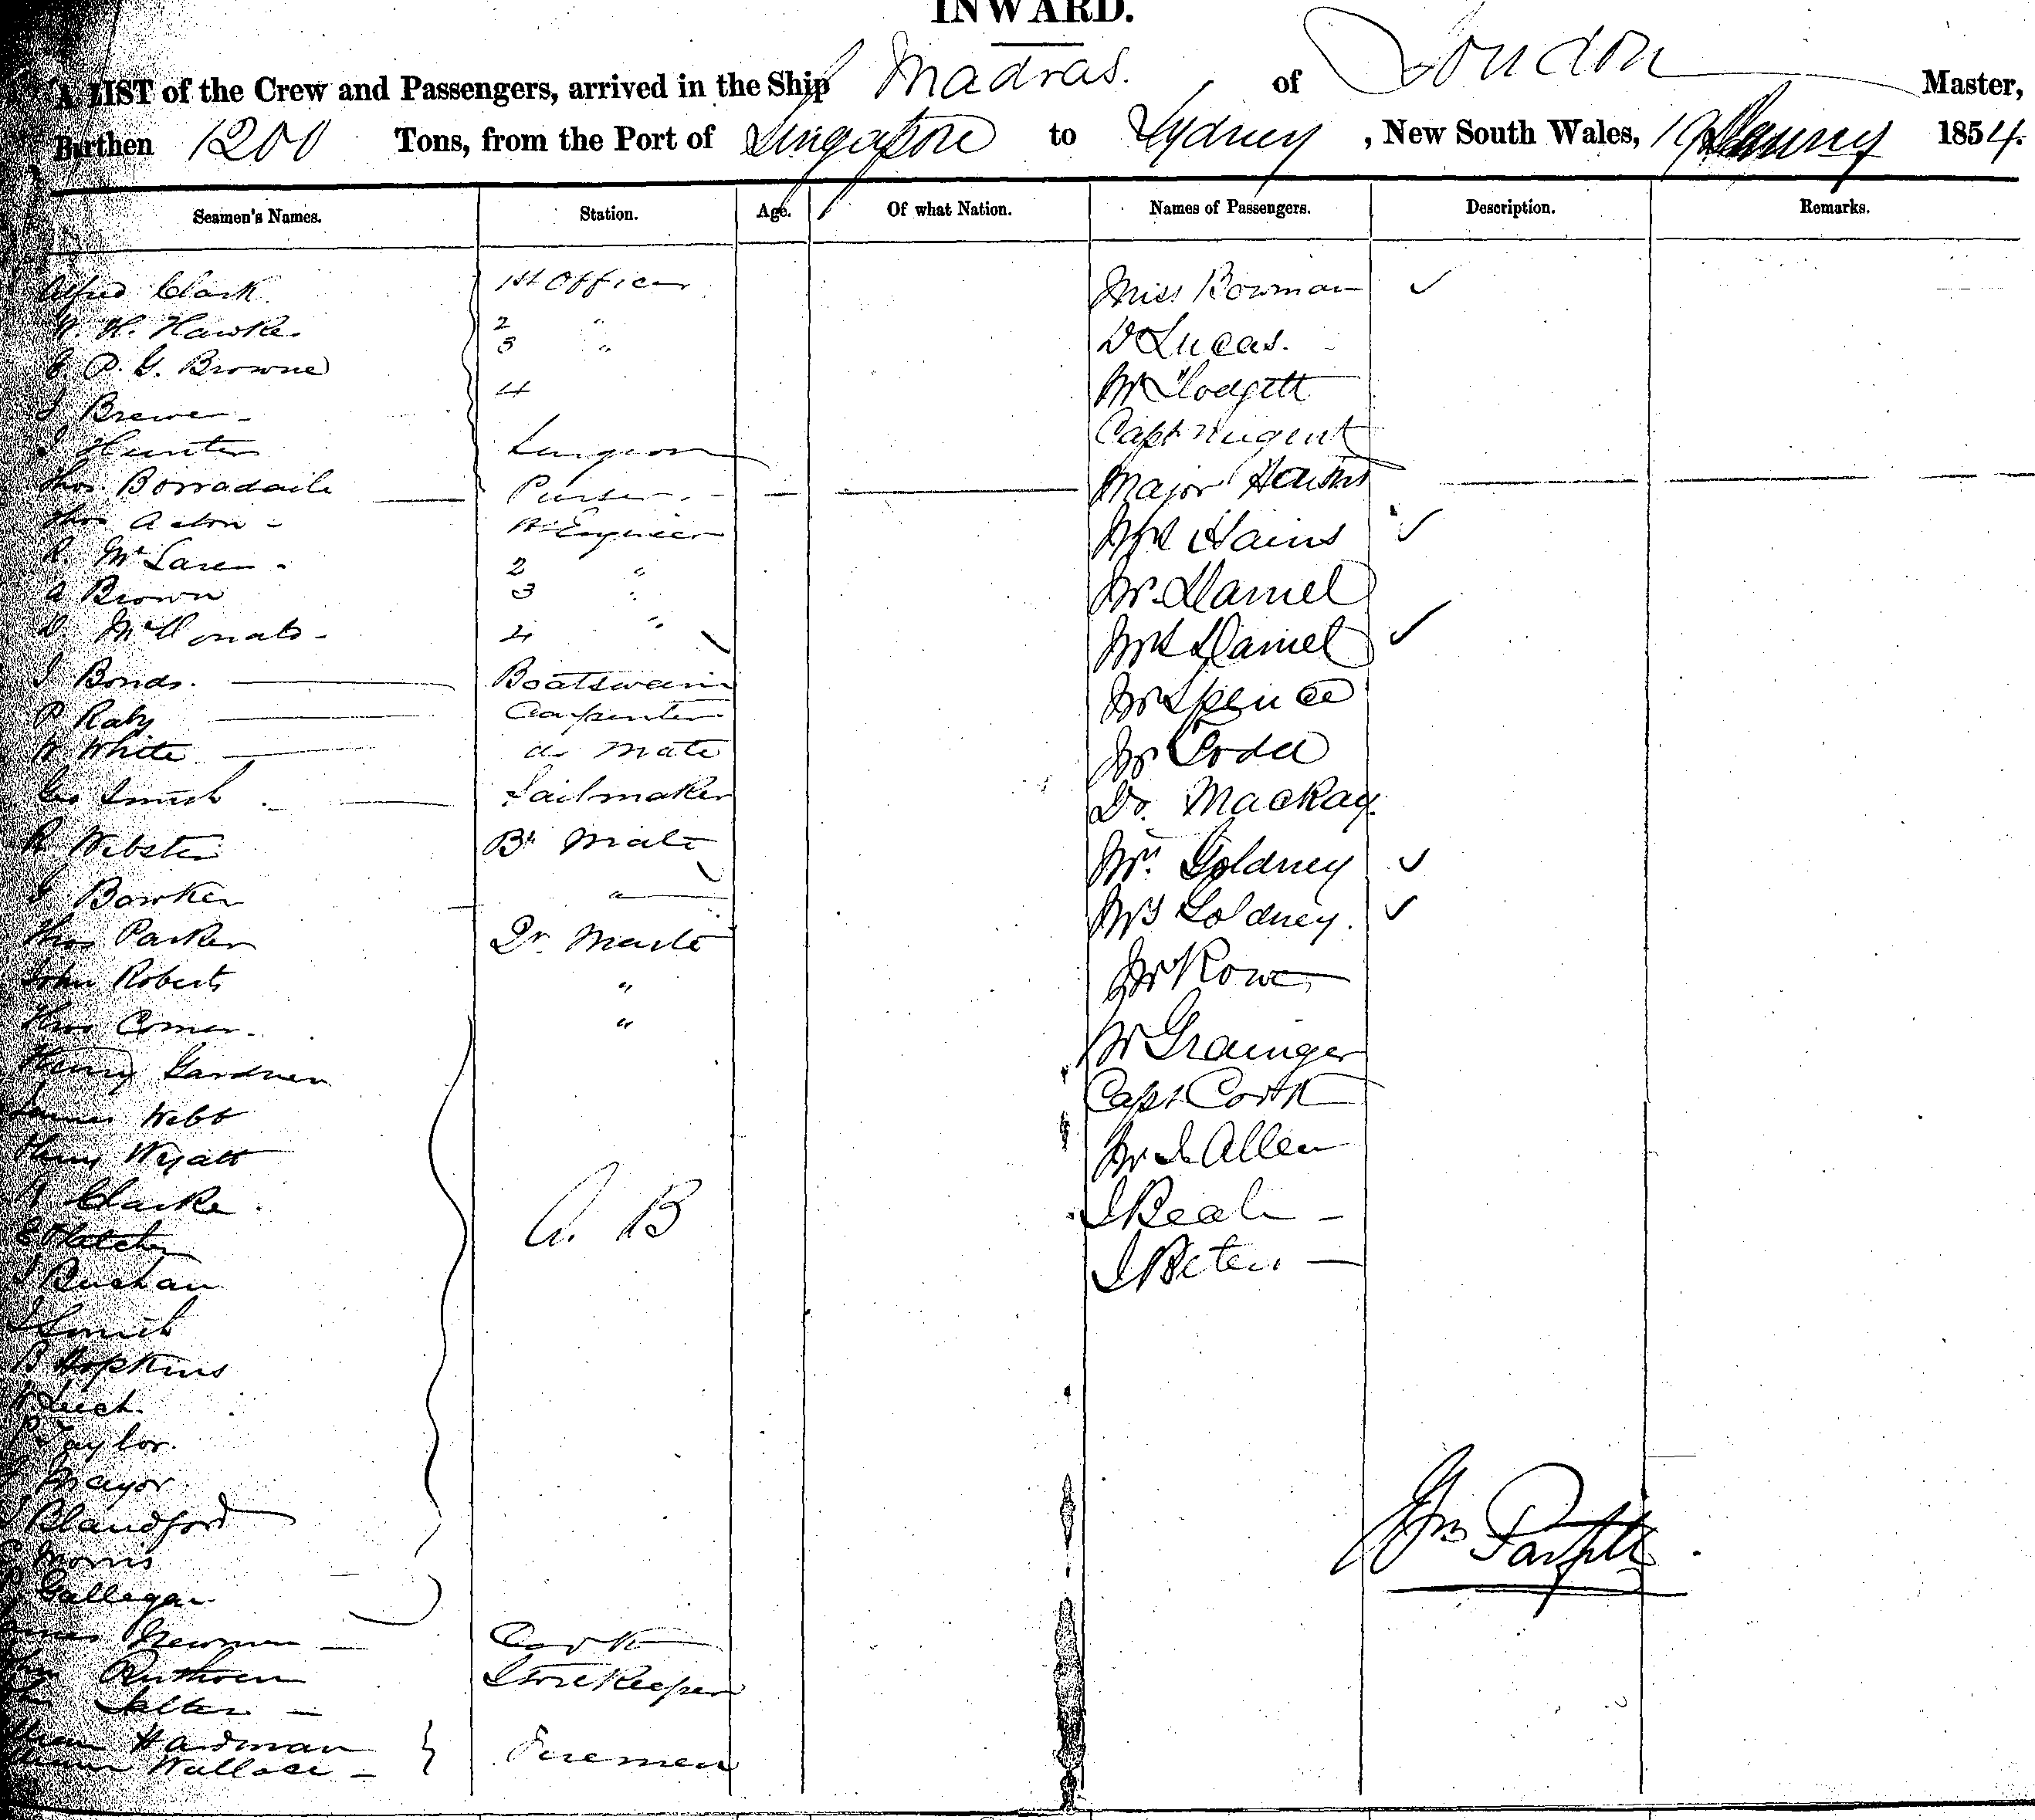 INWARD.
A LIST of the Crew and Passengers, arrived in the Ship Madras. of London Master,
Burthen 1200 Tons, from the Port of Singapore to Sydney, New South Wales, 19 January 1854.
Seamen's Names. Station. Age. Of what Nation. Names of Passengers. Description. Remarks.
Alfred Clark 1st Officer Miss Bowman ✓
W. H. Hawkes 2 " Dr Lucas.
P. G. Browne 3 " Mr
J Brewer 4 Capt Nugent
J Hunter Surgeon Major
Thos Borradaile Purser Mrs Hains ✓
Thos Acton 1st Engineer Mr. Daniel
R. McLaren 2 " Mrs Daniel ✓
A Brown 3 " Mr Spence
D. McDonald 4 " Mr Todd
J Bonds. Boatswain Dr. Mackay.
P Raby Carpenter Mrs. Goldney ✓
W White do Mate Mrs Goldney. ✓
Geo Smith Sailmaker Mr Rowe
R Webster Bs Mate Mr Grainger
G Bowker " Capt Cook
Thos Parker Qr. Master Mr J Allen
John Roberts " J Beale
Thos Comer. " J Peters
Henry Gardner
James Webb
Henry Wyatt
Clarke A. B
E Hatcher
J Buchan
J Smith
B Hopkins
Leech.
P Taylor.
Mayor
Blandford
Morris
Gallegan
James Newman Cook
Ruthven Storekeeper
Salter
William Hardman Firemen
William Wallace
Wm Parfitt